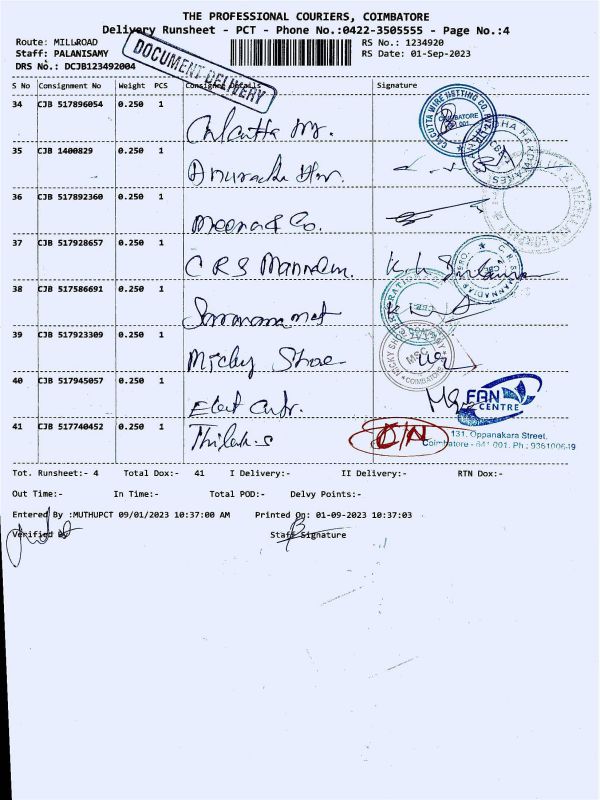 THE PROFESSIONAL COURIERS, COIMBATORE
Delivery Runsheet - PCT - Phone No.:0422-3505555 - Page No.:4
Route: MILLROAD
RS No.: 1234920
Staff: PALANISAMY
RS Date: 01-Sep-2023
DRS No.: DCJB123492004
DOCUMENT DELIVERY
S No Consignment No Weight PCS Consignee Details Signature
34 CJB 517896054 0.250 1 Calcutta
35 CJB 1400829 0.250 1 Anuradha
36 CJB 517892360 0.250 1 Meena & Co.
37 CJB 517928657 0.250 1 C R S
38 CJB 517586691 0.250 1
39 CJB 517923309 0.250 1 Micky Shoe
40 CJB 517945057 0.250 1
41 CJB 517740452 0.250 1 Thilak
FAN CENTRE
131, Oppanakara Street,
Coimbatore - 641 001. Ph : 9361006
Tot. Runsheet:- 4 Total Dox:- 41 I Delivery:- II Delivery:- RTN Dox:-
Out Time:- In Time:- Total POD:- Delvy Points:-
Entered By :MUTHUPCT 09/01/2023 10:37:00 AM Printed On: 01-09-2023 10:37:03
Verified By
Staff Signature